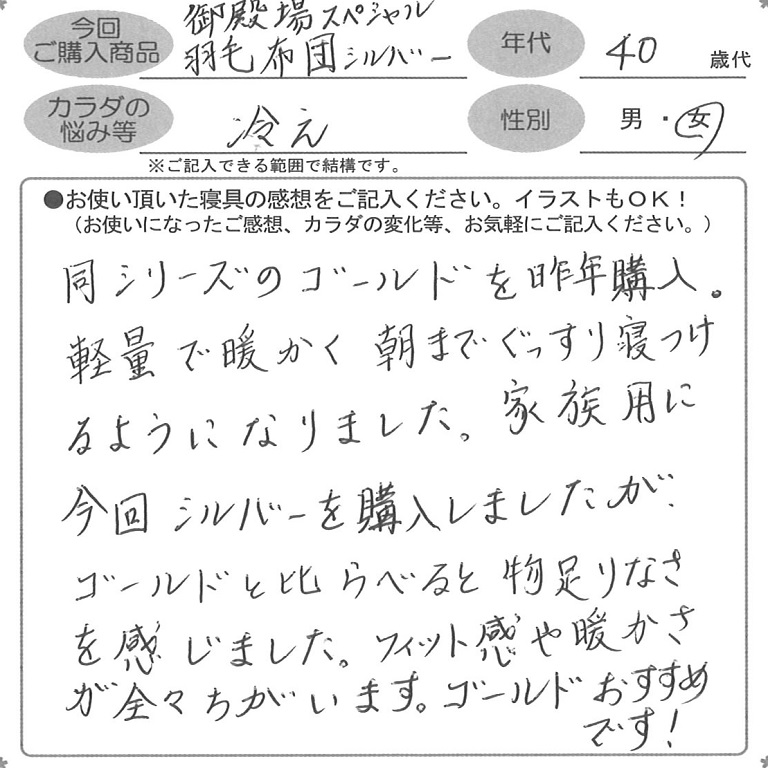 今回
ご購入商品
御殿場スペシャル
羽毛布団シルバー
年代
40 歳代
カラダの
悩み等
冷え
性別
男・女
※ご記入できる範囲で結構です。
●お使い頂いた寝具の感想をご記入ください。イラストもOK！
（お使いになったご感想、カラダの変化等、お気軽にご記入ください。）
同シリーズのゴールドを昨年購入。
軽量で暖かく朝までぐっすり寝つけ
るようになりました。家族用に
今回シルバーを購入しましたが、
ゴールドと比らべると物足りなさ
を感じました。フィット感や暖かさ
が全々ちがいます。ゴールドおすすめ
です！